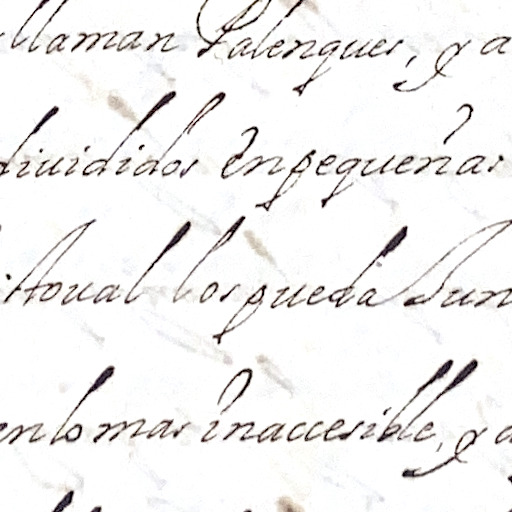 llaman Palenques, y a
diuididos En pequeñas
los pueda Jun
en lo mas Inaccesible, y a